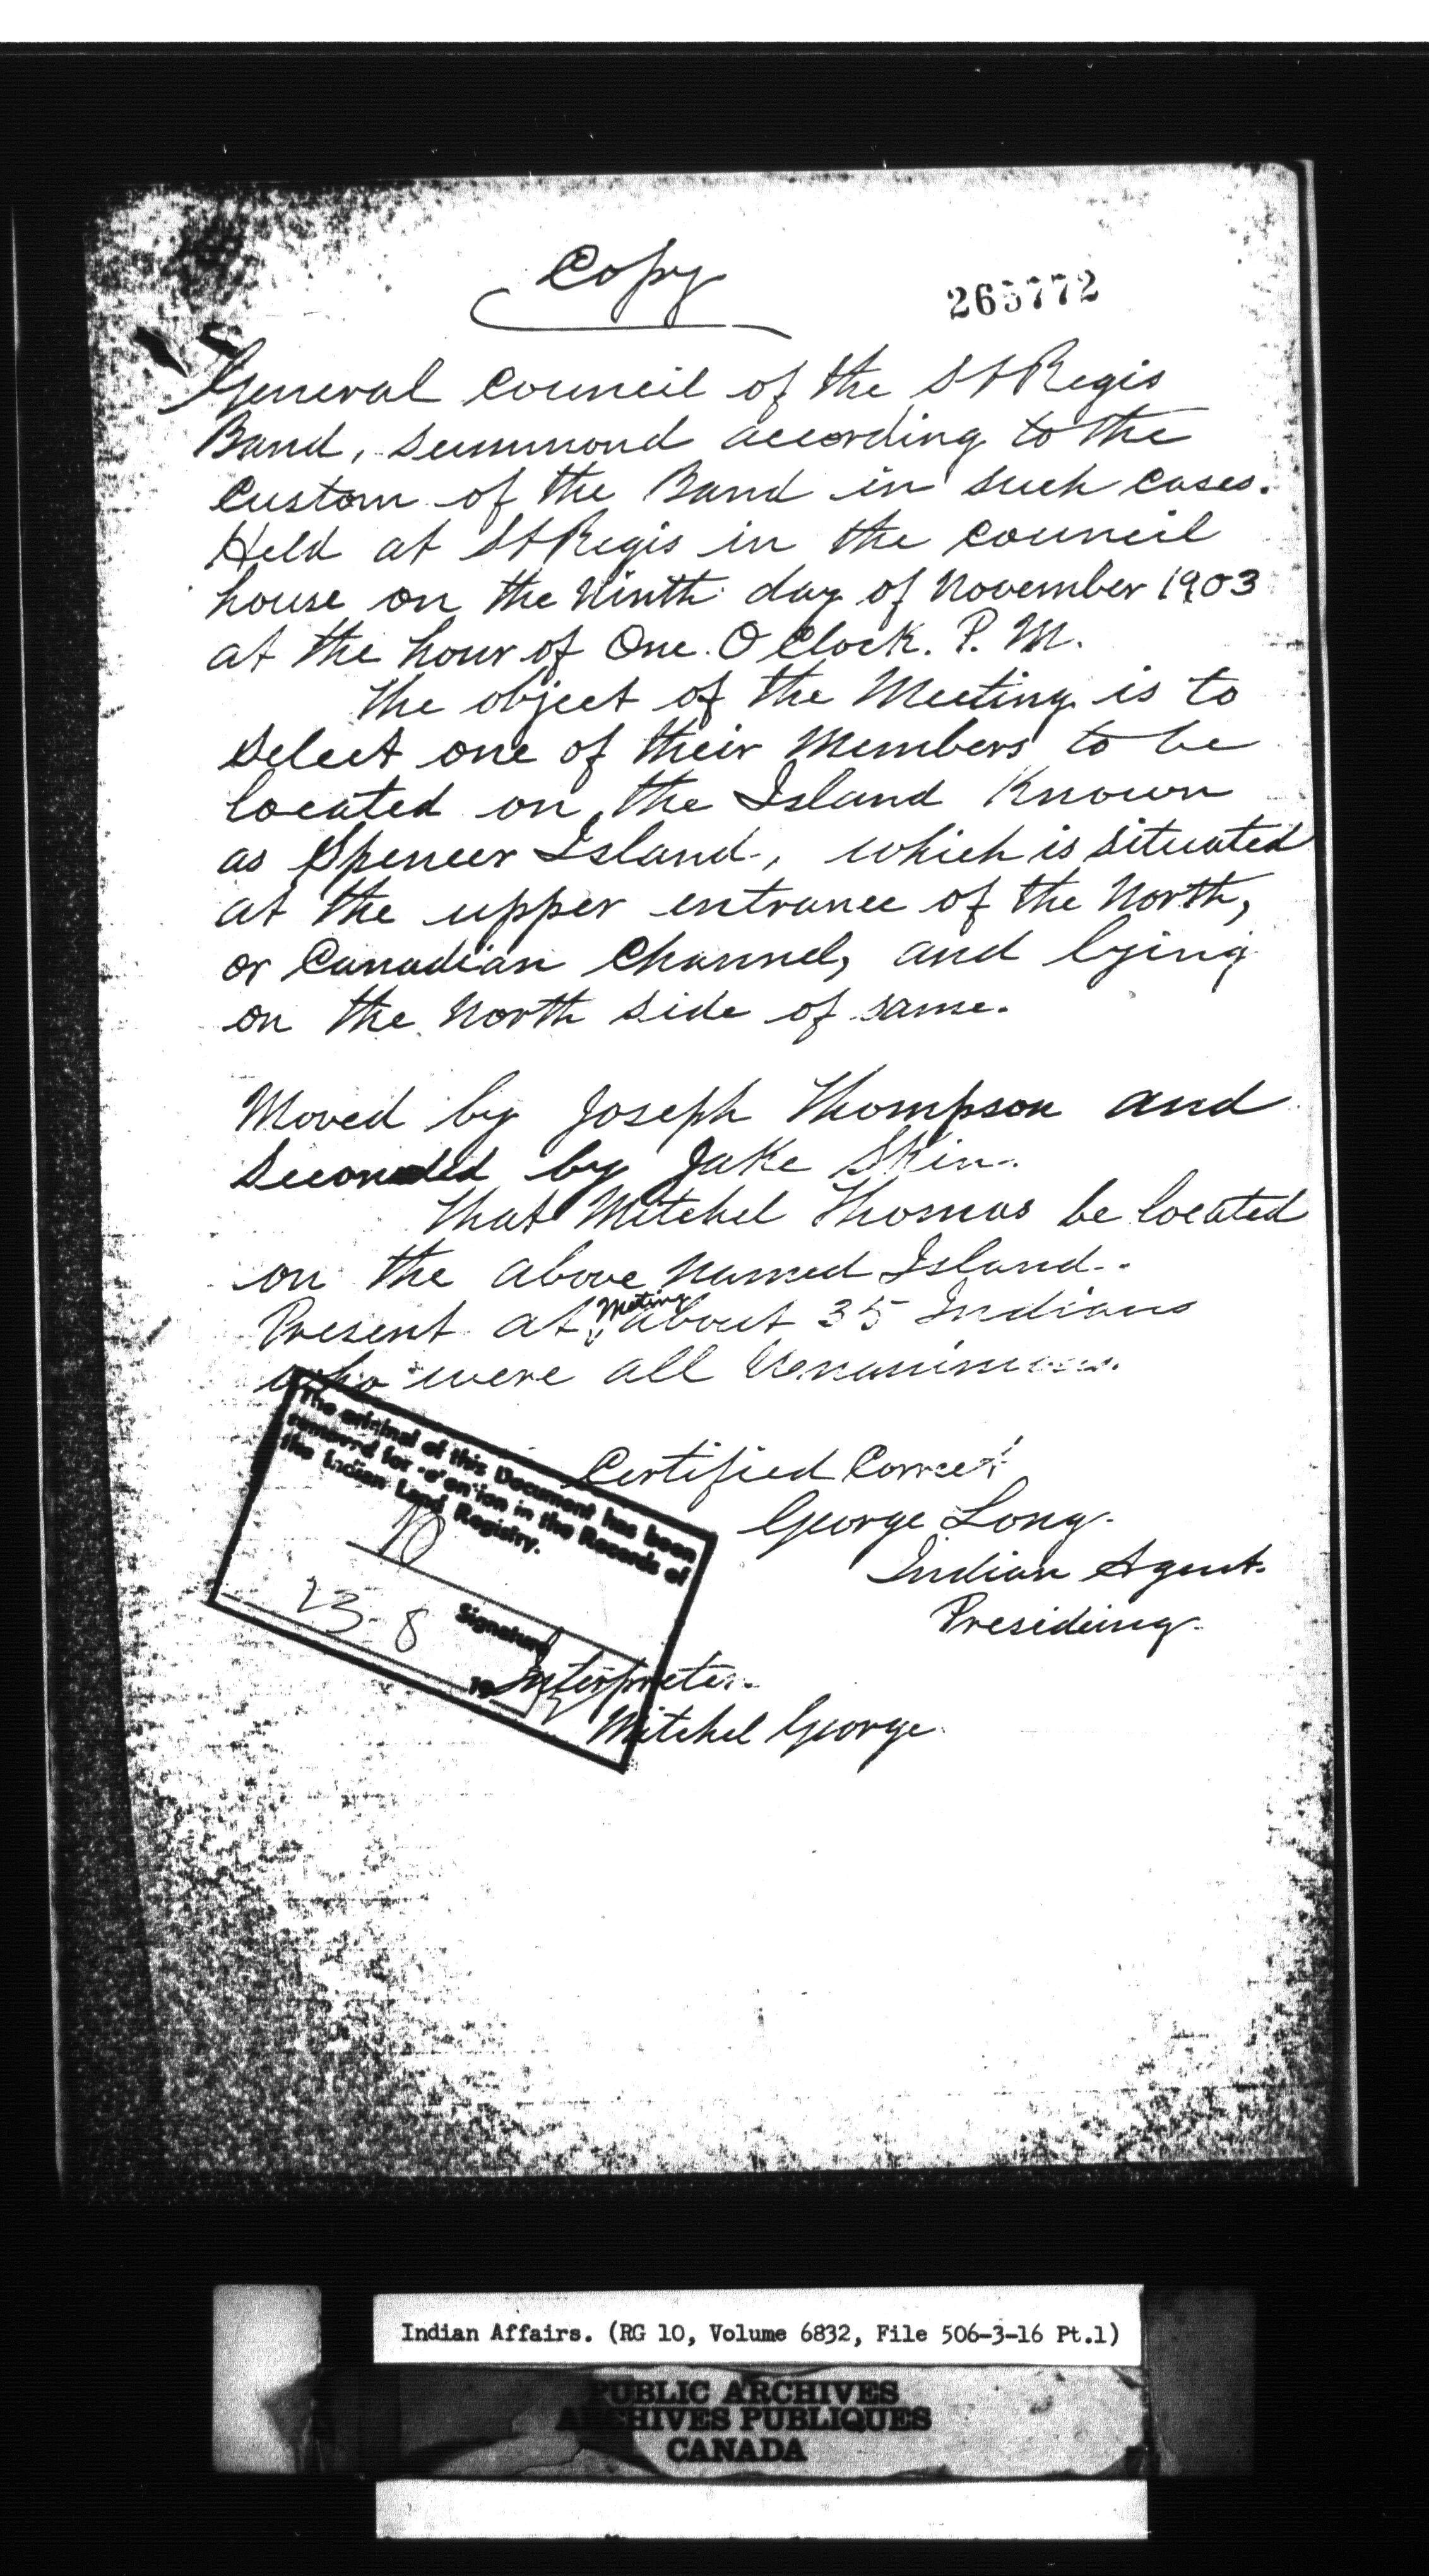 Copy
265772
General Council of the St Regis
Band, summond according to the
Custom of the Band in such cases.
Held at St Regis in the council
house on the Ninth day of November 1903
at the hour of One O Clock. P. M.
The object of the Meeting is to
Select one of their Members to be
located on the Island Known
as Spencer Island, which is situated
at the upper entrance of the North,
or Canadian Channel, and lying
on the North side of same.
Moved by Joseph Thompson and
Seconded by Jake Skin.
That Mitchel Thomas be located
on the above named Island.
Meting
Present at about 35 Indians
who were all Unanimous.
The original of this Document has been
removed for retention in the Records of
the Indian Land Registry.
Certified Correct
George Long.
Indian Agent.
Presiding.
23-8
Signature
19
Interpreter.
Mitchel George
Indian Affairs. (RG 10, Volume 6832, File 506-3-16 Pt.1)
PUBLIC ARCHIVES
ARCHIVES PUBLIQUES
CANADA